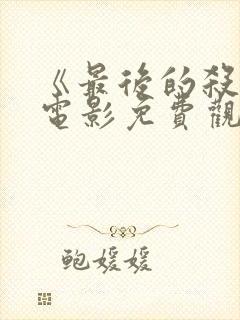 《最後的殺
電影免費觀
鲍媛媛